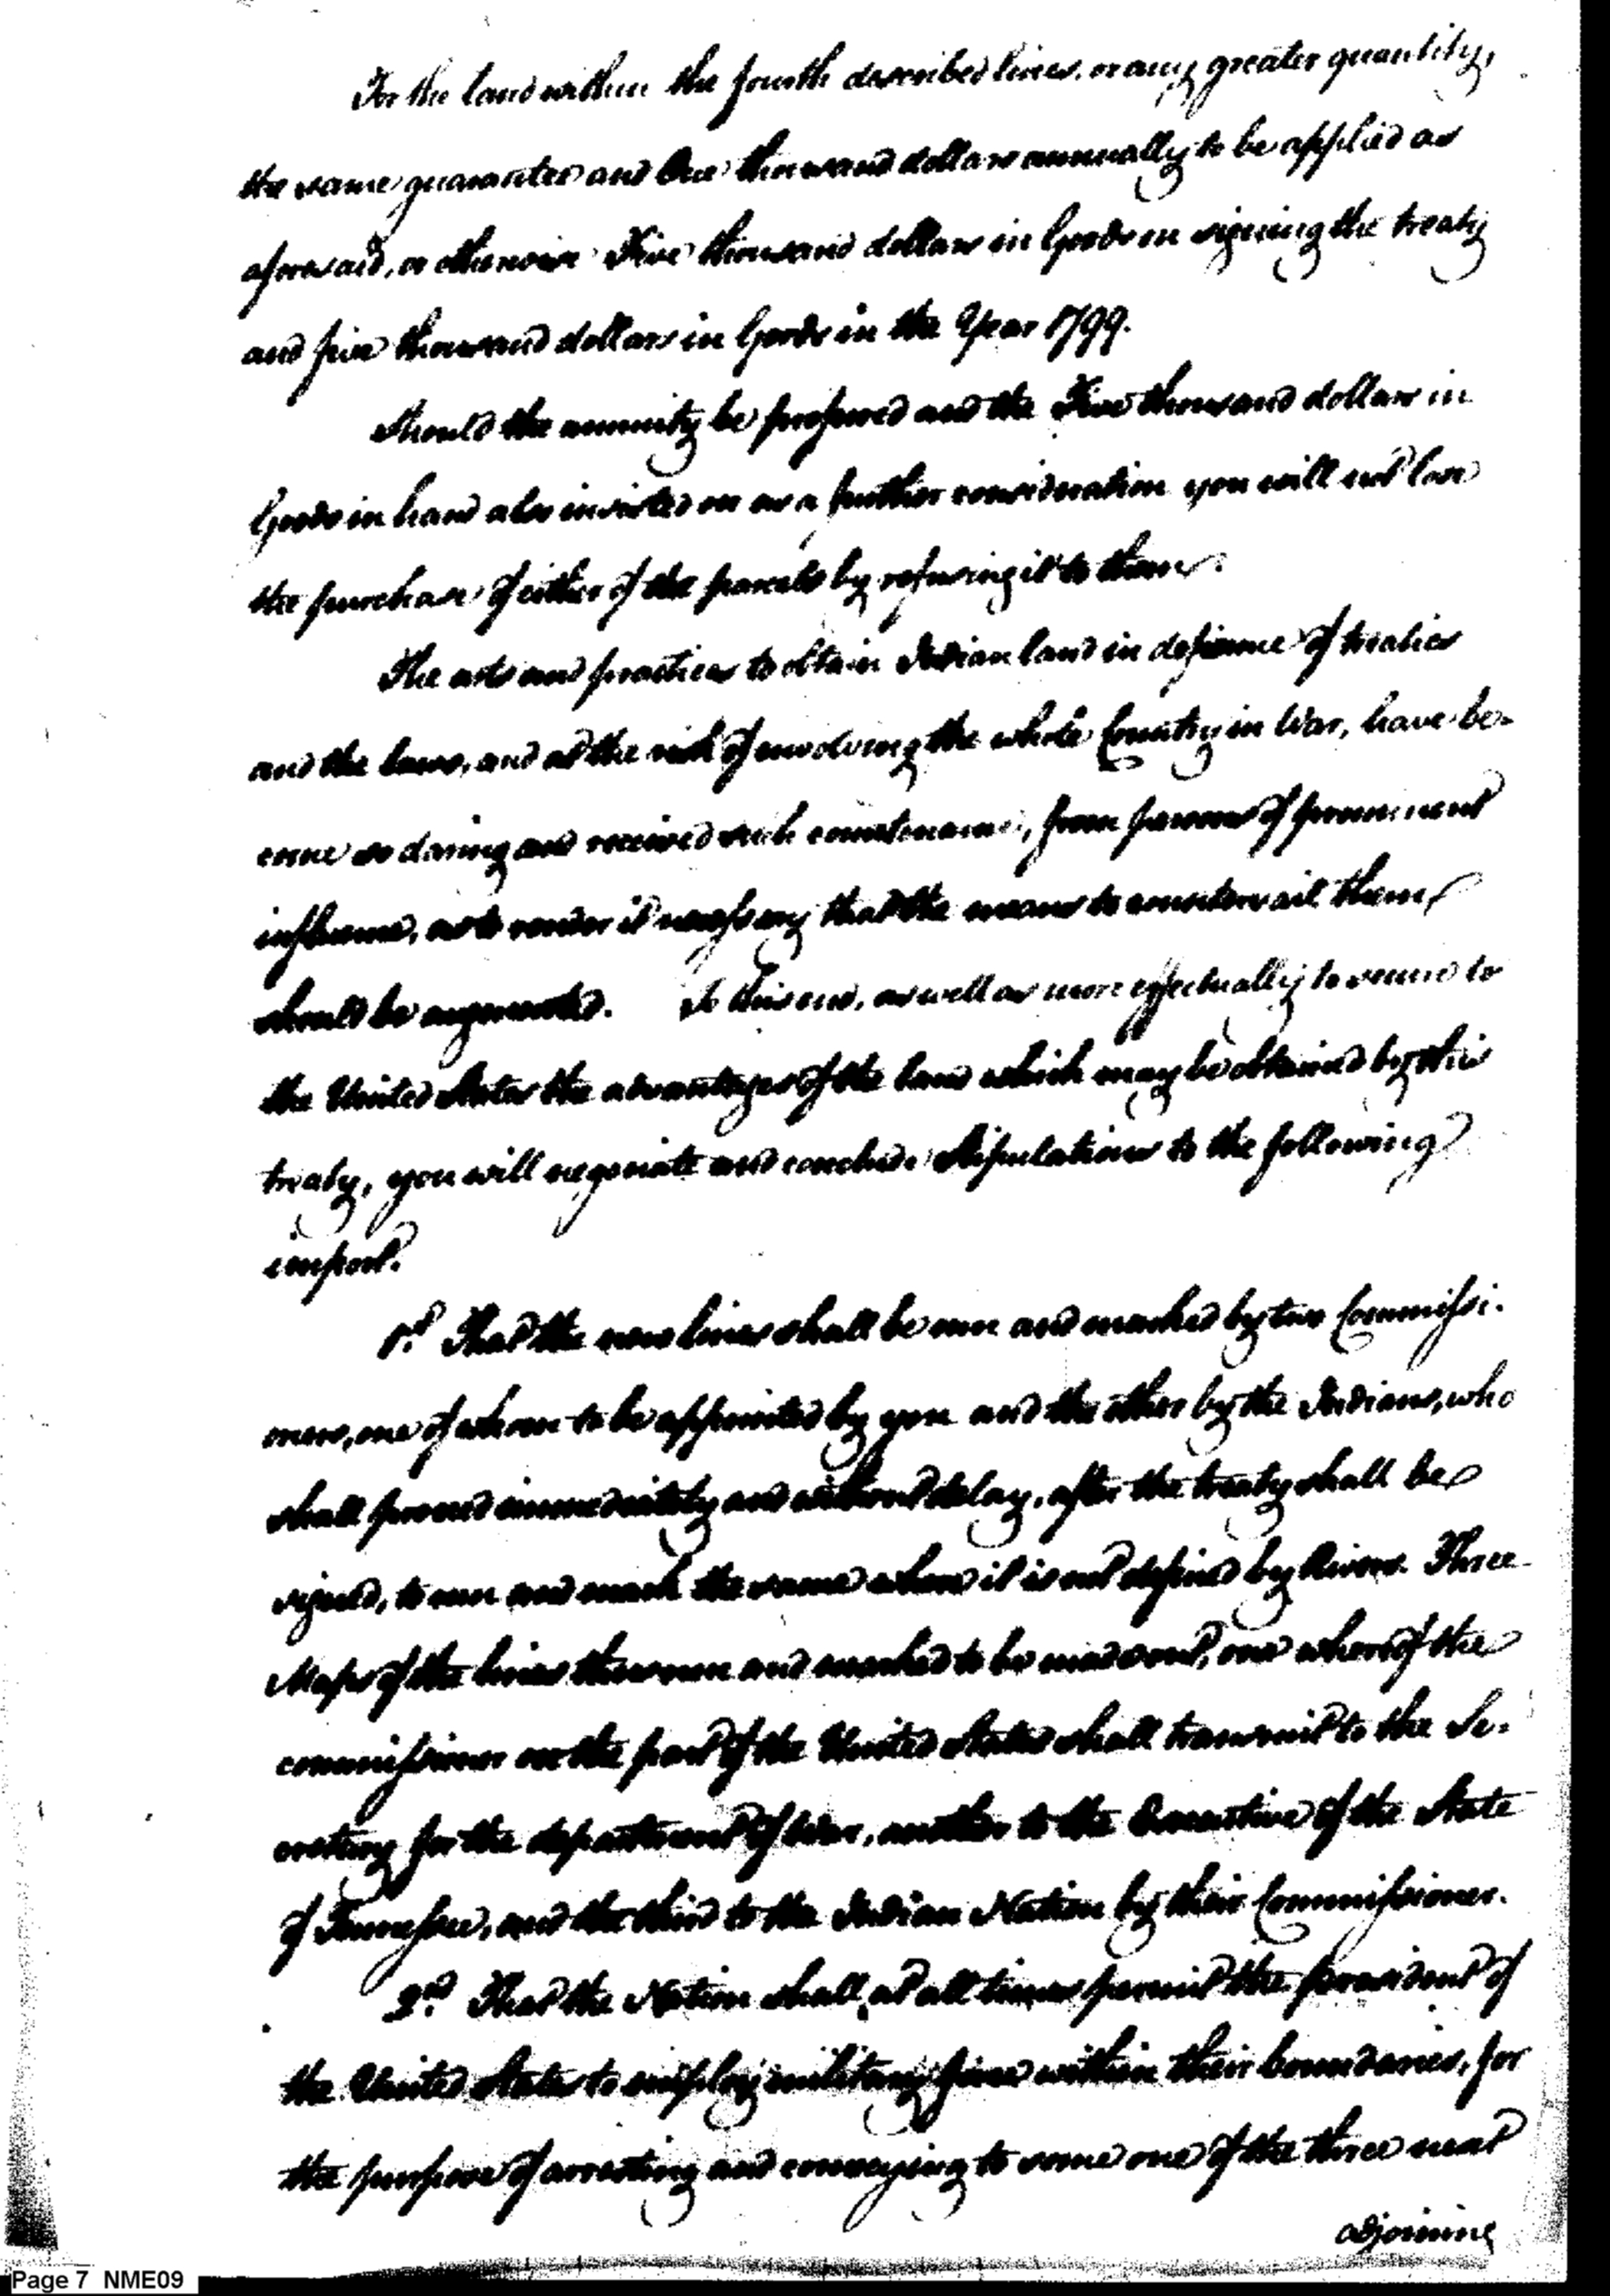 For the land within the fourth described lines, or any greater quantity,
the same guarantee and One thousand dollars annually to be applied as
aforesaid, or otherwise Five thousand dollars in Goods on signing the treaty
and five thousand dollars in Goods in the Year 1799.
Should the annuity be prefered and the Five thousand dollars in
Goods in hand also insisted on as a further consideration you will not lose
the purchase of either of the parcels by refusing it to them.
The arts and practices to obtain Indian land in defiance of treaties
and the laws, and at the risk of involving the whole Country in War, have be-
come so daring and received such countenance, from persons of prominent
influence, as to render it necessary that the means to countervail them
should be augmented. To this end, as well as more effectually to secure to
the United States the advantages of the land which may be obtained by this
treaty, you will negociate and conclude Stipulations to the following
import.
1st. That the new lines shall be run and marked by two Commissi-
oners, one of whom to be appointed by you and the other by the Indians, who
shall proceed immediately and without delay, after the treaty shall be
signed, to run and mark the same where it is not defined by Rivers. Three
Maps of the lines thus run and marked to be made out, one whereof the
commissioner on the part of the United States shall transmit to the Se-
cretary for the department of War, another to the Executive of the State
of Tennessee, and the third to the Indian Nation by their Commissioner.
2nd. That the Nation shall, at all times permit the president of
the United States to employ military force within their boundaries, for
the purpose of arresting and conveying to some one of the three next
adjoining
Page 7 NME09